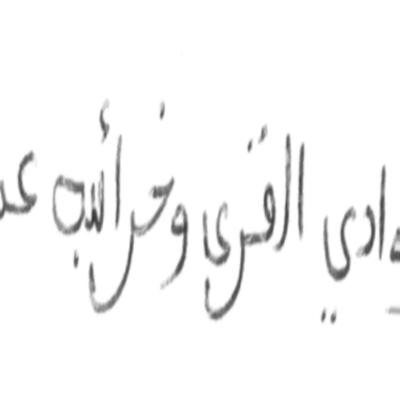 وادي القرى وخرائبه